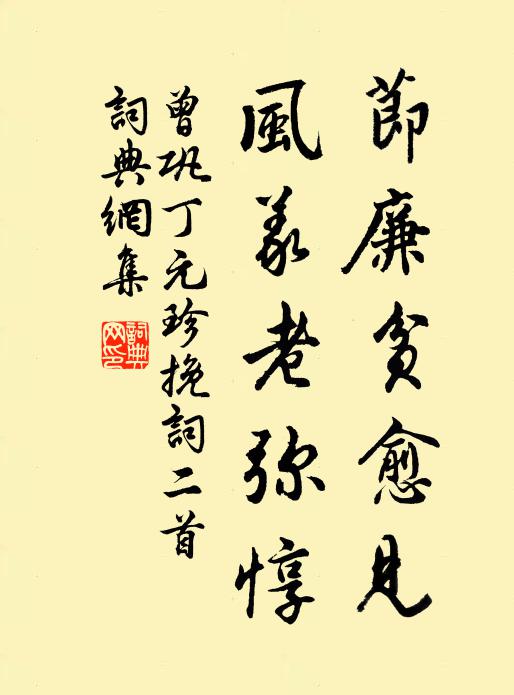 節廉貧愈見
風義老弥惇
曾巩丁元珍挽詞二首
詞典網集
詞典
网印